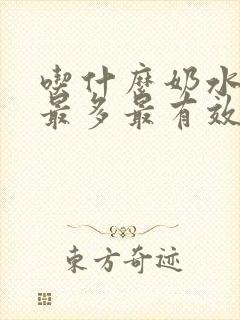 喫什麼奶水
最多最有效
東方奇迹